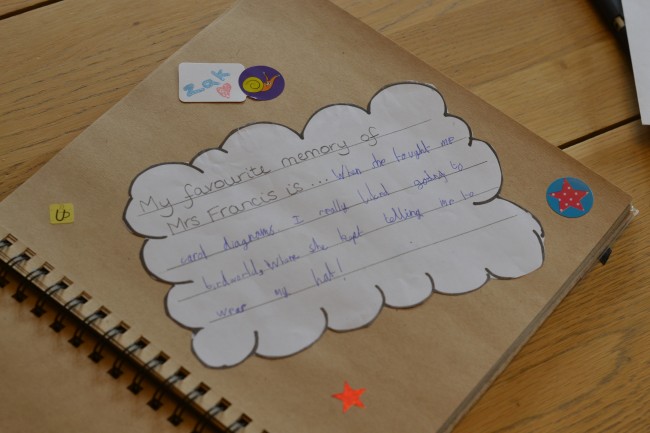 Zak
My favourite memory of
Mrs Francis is ... When she taught me
carol diagrams I really liked going to
birdworld. When she kept telling me to
wear my hat!